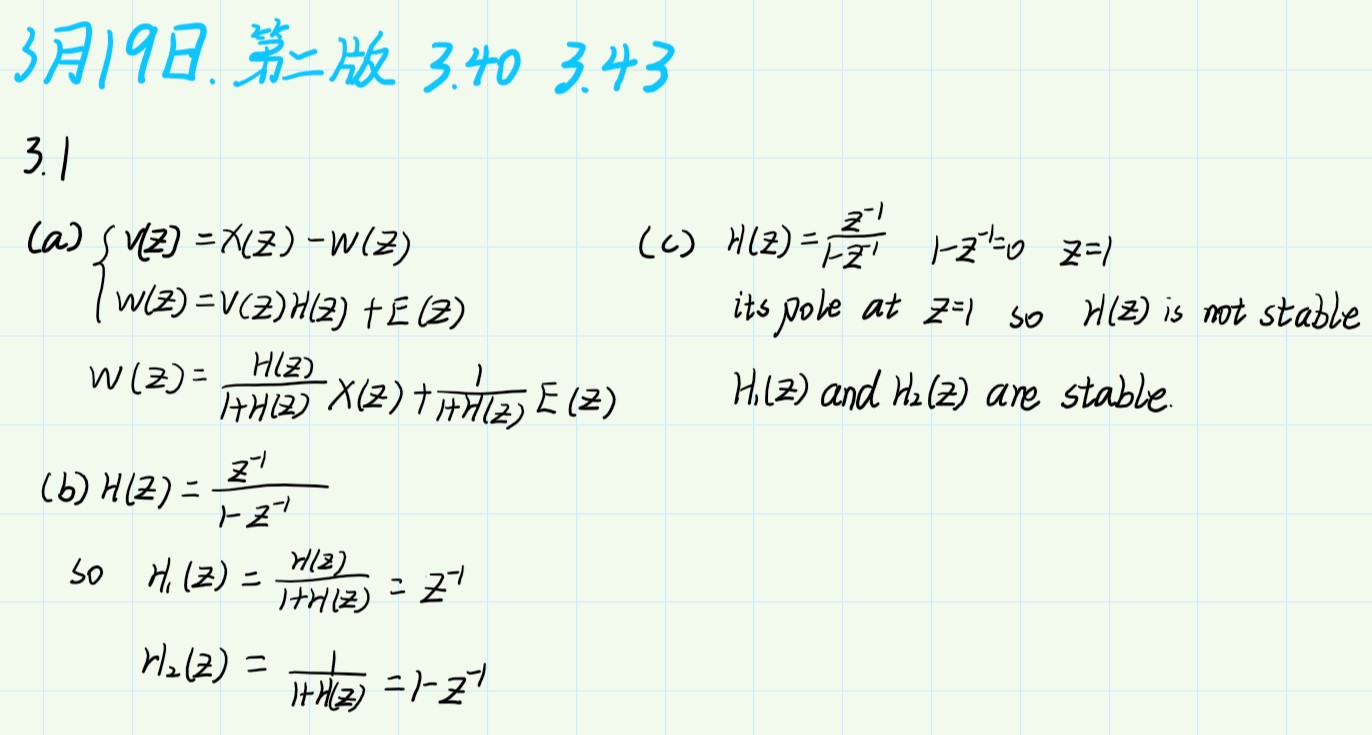 3月19日. 第二版 3.40 3.43
3.1
(a) { V(z) = X(z) - W(z)
W(z) = V(z)H(z) + E(z)
W(z) = \frac{H(z)}{1+H(z)} X(z) + \frac{1}{1+H(z)} E(z)
(b) H(z) = \frac{z^{-1}}{1-z^{-1}}
so H₁(z) = \frac{H(z)}{1+H(z)} = z^{-1}
H₂(z) = \frac{1}{1+H(z)} = 1-z^{-1}
(c) H(z) = \frac{z^{-1}}{1-z^{-1}} 1-z^{-1}=0 z=1
its pole at z=1 so H(z) is not stable
H₁(z) and H₂(z) are stable.